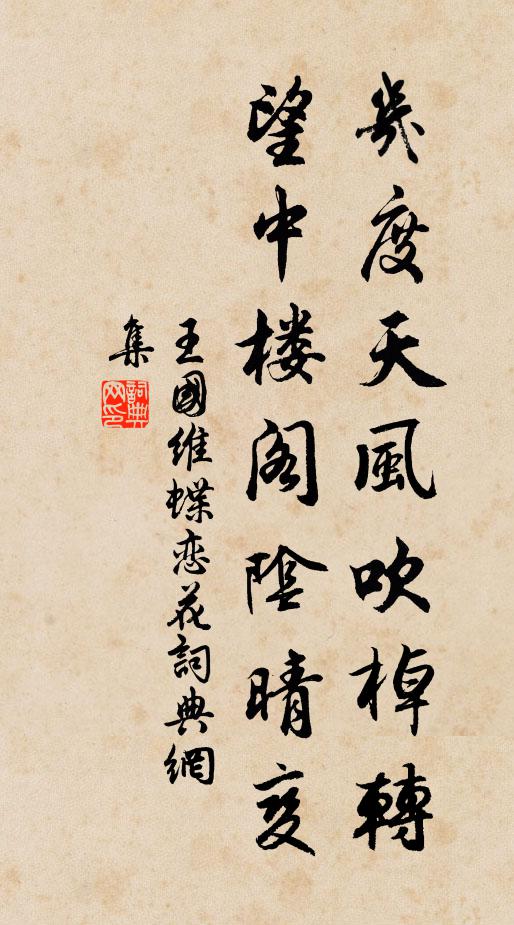 幾度天風吹棹轉
望中樓閣陰晴變
王國維蝶恋花詞典網
集
詞典網印